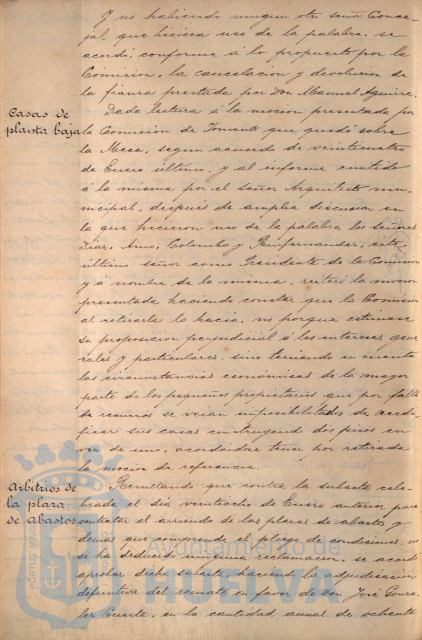 Y no habiendo ningun otro señor Conce-
jal que hiciera uso de la palabra, se
acordó, conforme á lo propuesto por la
Comision, la cancelacion y devolucion de
la fianza prestada por Don Manuel Aguirre.
Casas de
planta baja
Dada lectura á la mocion presentada por
la Comision de Fomento que quedó sobre
la Mesa, segun acuerdo de veinticuatro
de Enero último, y al informe emitido
á la misma por el señor Arquitecto mu-
nicipal, después de amplia discusion en
la que hicieron uso de la palabra los señores
Díaz, Colombo y este
último señor como Presidente de la Comision
y á nombre de la misma, retiró la mocion
presentada haciendo constar que la Comision
al retirarla lo hacia, no porque estimase
su proposicion perjudicial á los intereses gene-
rales y particulares, sino teniendo en cuenta
las circunstancias económicas de la mayor
parte de los pequeños propietarios que por falta
de recursos se verian imposibilitados de reedi-
ficar sus casas construyendo dos pisos en
vez de uno, acordandose tener por retirada
la mocion de referencia.
Arbitrios de
la plaza
de abastos
Resultando que contra la subasta cele-
brada el dia veintiocho de Enero anterior, para
contratar el arriendo de las plazas de abastos y
demás que comprende el pliego de condiciones, no
se ha deducido ninguna reclamacion, se acordó
aprobar dicha subasta, haciendo la adjudicacion
definitiva del remate en favor de Don José Gonza-
lez Cuarto, en la cantidad anual de ochenta
Ayuntamiento de
HUELVA
PORTUS MARIS